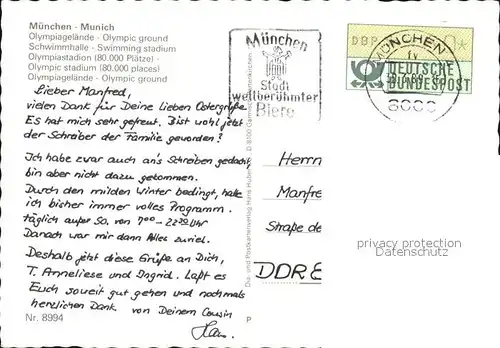 München - Munich
Olympiagelände - Olympic ground
Schwimmhalle - Swimming stadium
Olympiastadion (80.000 Plätze) -
Olympic stadium (80.000 places)
Olympiagelände - Olympic ground
Lieber Manfred,
vielen Dank für Deine lieben Ostergrüße.
Es hat mich sehr gefreut. Bist wohl jetzt
der Schreiber der Familie geworden?
Ich habe zwar auch an's Schreiben gedacht,
bin aber nicht dazu gekommen.
Durch den milden Winter bedingt, hatte
ich bisher immer volles Programm.
täglich außer So. von 700 - 2200 Uhr
Danach war mir dann Alles zuviel.
Deshalb jetzt diese Grüße an Dich,
T. Anneliese und Ingrid. Laßt es
Euch soweit gut gehen und nochmals
herzlichen Dank von Deinem Cousin
Nr. 8994
Dia- und Postkartenverlag Hans Huber D 8100 Garmisch-Partenkirchen
P
München
Stadt
weltberühmter
Biere
DBP
MÜNCHEN
DEUTSCHE
BUNDESPOST
8000
Herrn
Manfre
Straße de
DDR
privacy protection
Datenschutz